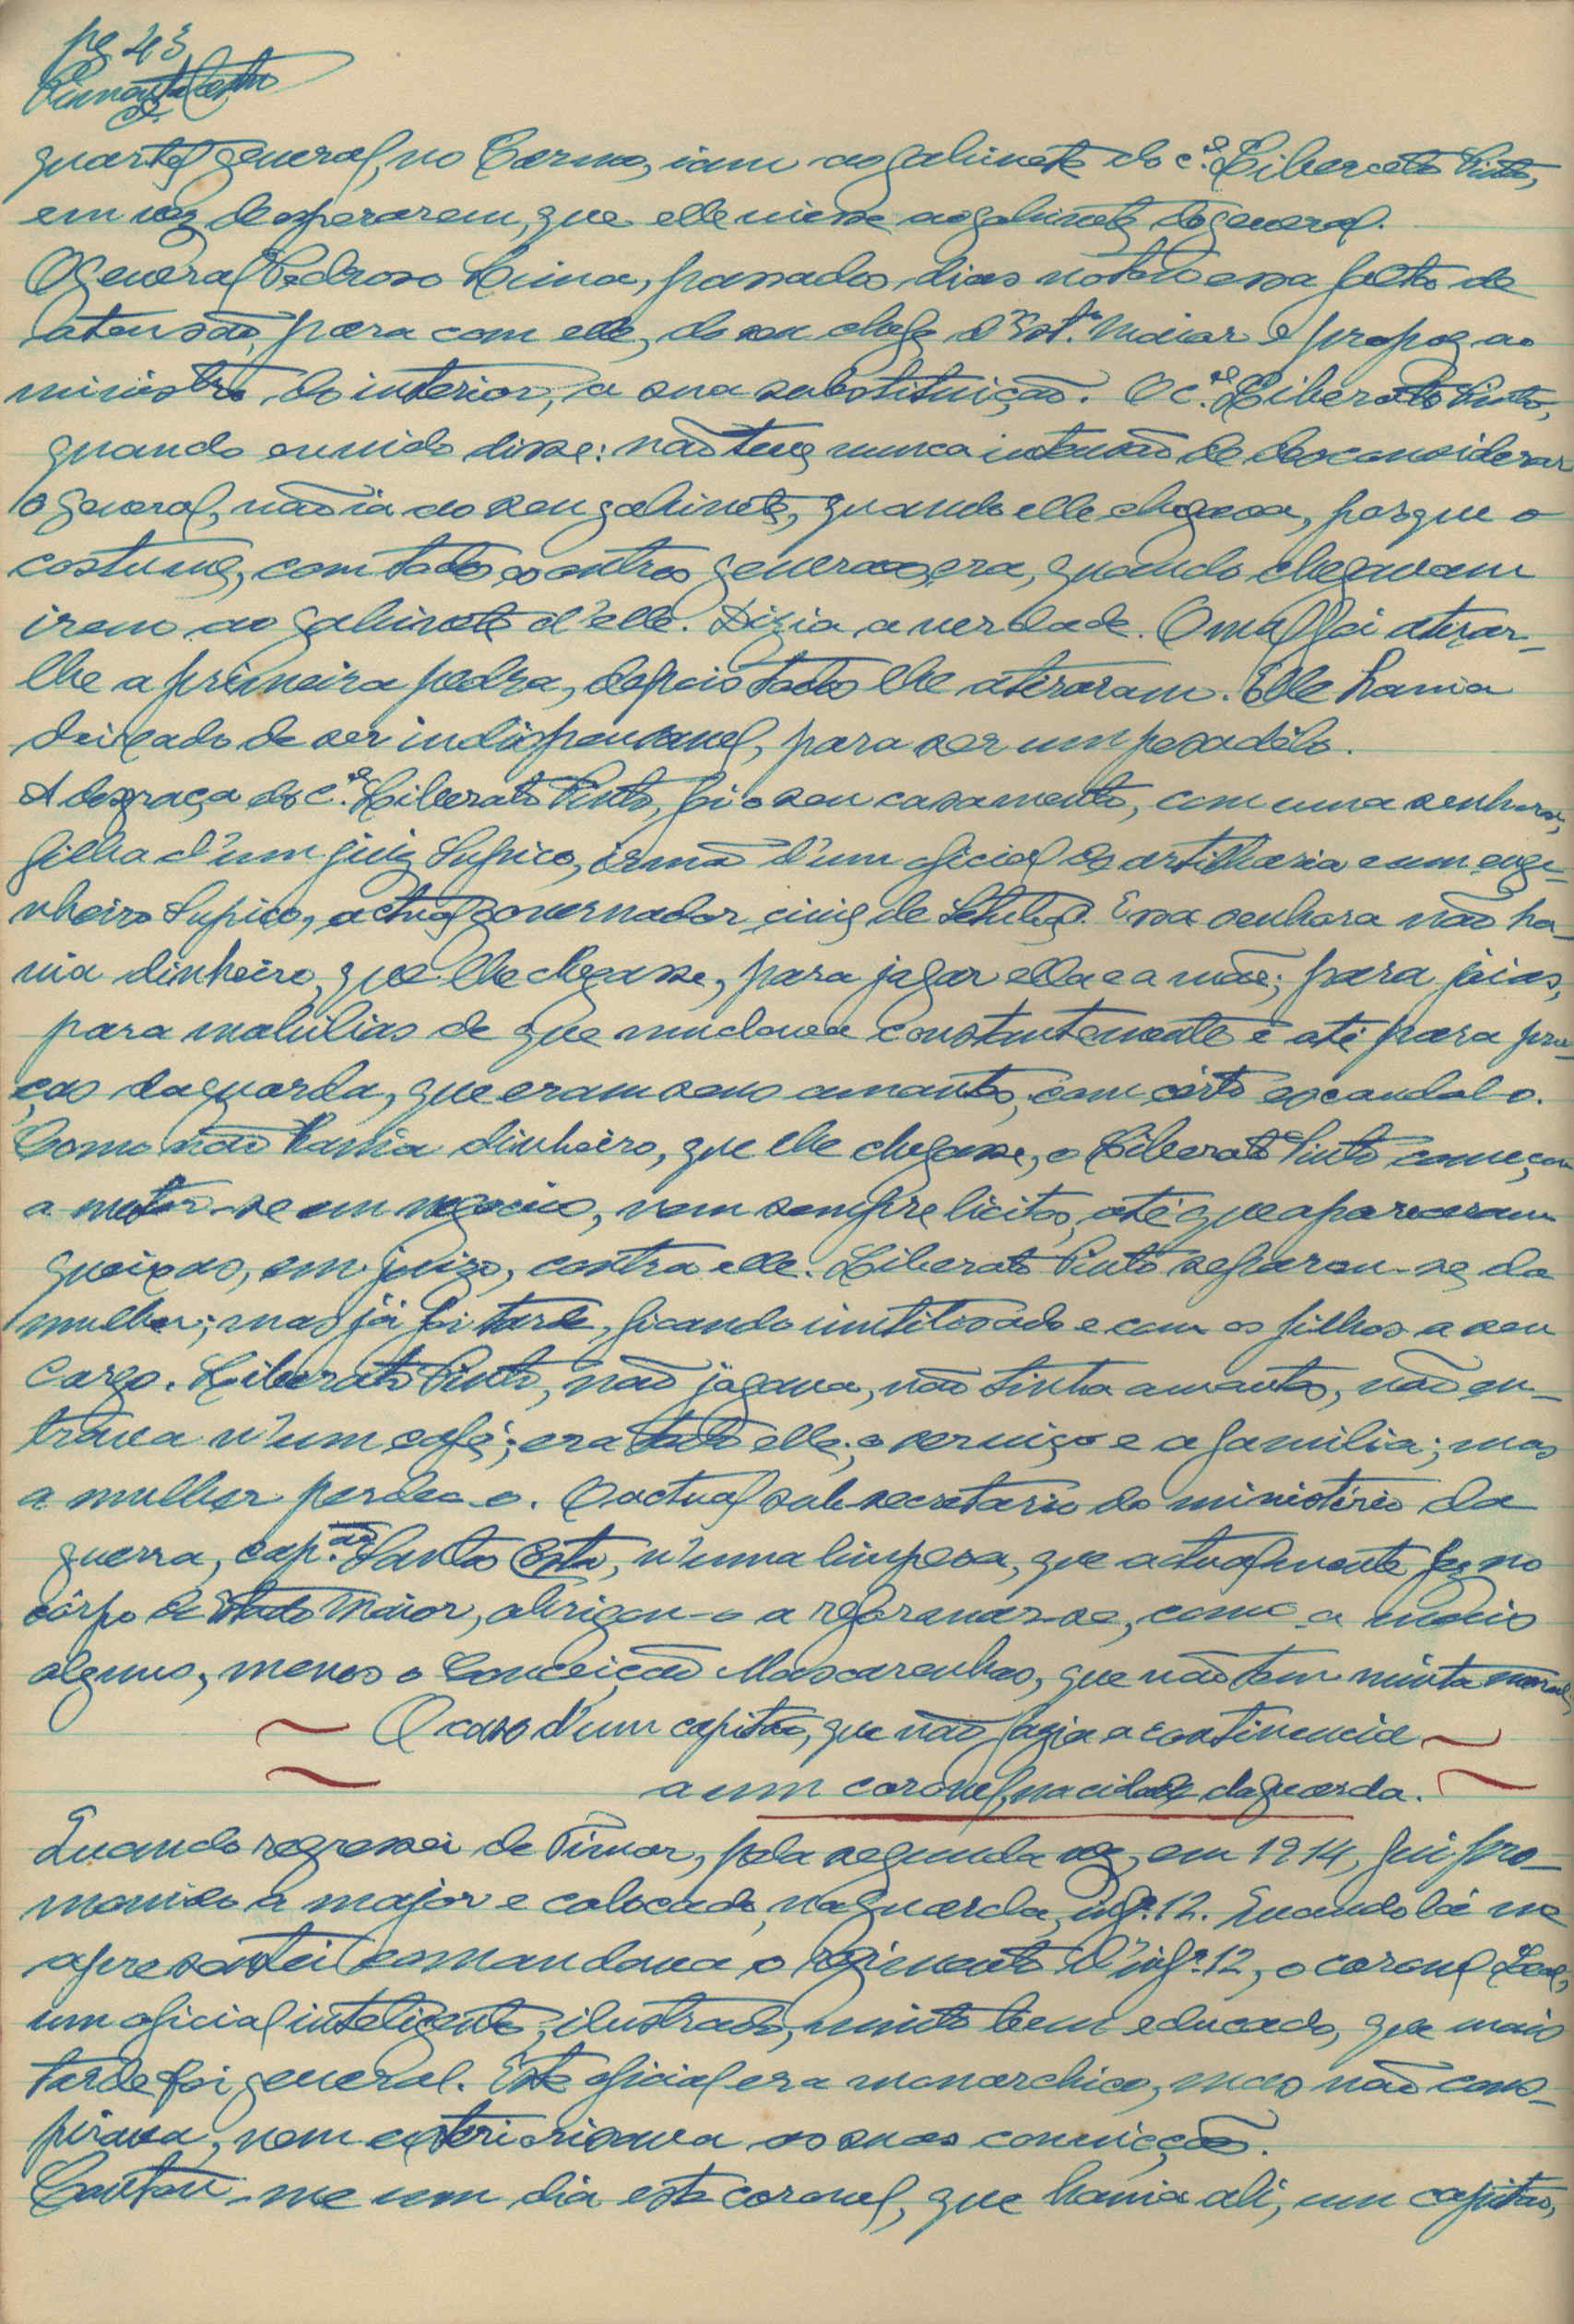 pg 43
quartel general, no Carmo, iam ao gabinete do c.el Liberato Pinto,
em vez de esperarem, que elle viesse ao gabinete do general.
O general Pedroso Lima, passados dias notou essa falta de
atensão, para com elle, do seu chefe d'Est.º Maior e propoz ao
ministro do interior, a sua substituição. O c.el Liberato Pinto,
quando ouvido disse: não teve nunca intensão de desconsiderar
o general, não ia ao seu gabinete, quando elle chegava, porque o
costume, com todos os outros generaes, era, quando chegavam
irem ao gabinete d'elle. Dizia a verdade. O mal foi atirar-
lhe a primeira pedra, depois todos lhe atiraram. Elle havia
deixado de ser indispensavel, para ser um pesadêlo.
A desgraça do c.el Liberato Pinto, foi o seu casamento, com uma senhora,
filha d'um juiz Supico, irmã d'um oficial de artilharia e um enge-
nheiro Supico, actual governador civil de Setubal. Essa senhora não ha-
via dinheiro, que lhe chegasse, para jogar ella e a mãe; para joias,
para mobilias de que mudava constantemente e até para pra-
ças da guarda, que eram seus amantes, com certo escandalo.
Como não havia dinheiro, que lhe chegasse, o Liberato Pinto começou
a meter-se em negocios, nem sempre licitos, até que apareceram
queixas, em juizo, contra elle. Liberato Pinto separou-se da
mulher; mas já foi tarde, ficando inutilisado e com os filhos a seu
cargo. Liberato Pinto, não jogava, não tinha amantes, não en-
trava n'um café; era todo elle, o serviço e a familia; mas
a mulher perdeu-o. O actual sub-secretario do ministério da
guerra, cap.ão Santos Costa, n'uma limpesa, que actualmente fez no
côrpo de Estado Maior, obrigou-o a reformar-se, como a mais
alguns, menos o Conceição Mascarenhas, que não tem muita moral.
O caso d'um capitão, que não fazia a continencia
a um coronel, na cidade da guarda.
Quando regressei de Timor, pela segunda vez, em 1914, fui pro-
movido a major e colocado, na guarda, inf.ª 12. Quando lá me
apresentei comandava o regimento d'inf.ª 12, o coronel Leal,
um oficial inteligente, ilustrado, muito bem educado, que mais
tarde foi general. Este oficial era monarchico, mas não cons-
pirava, nem exteriorisava as suas convicções.
Contou-me um dia este coronel, que havia ali, um capitão,